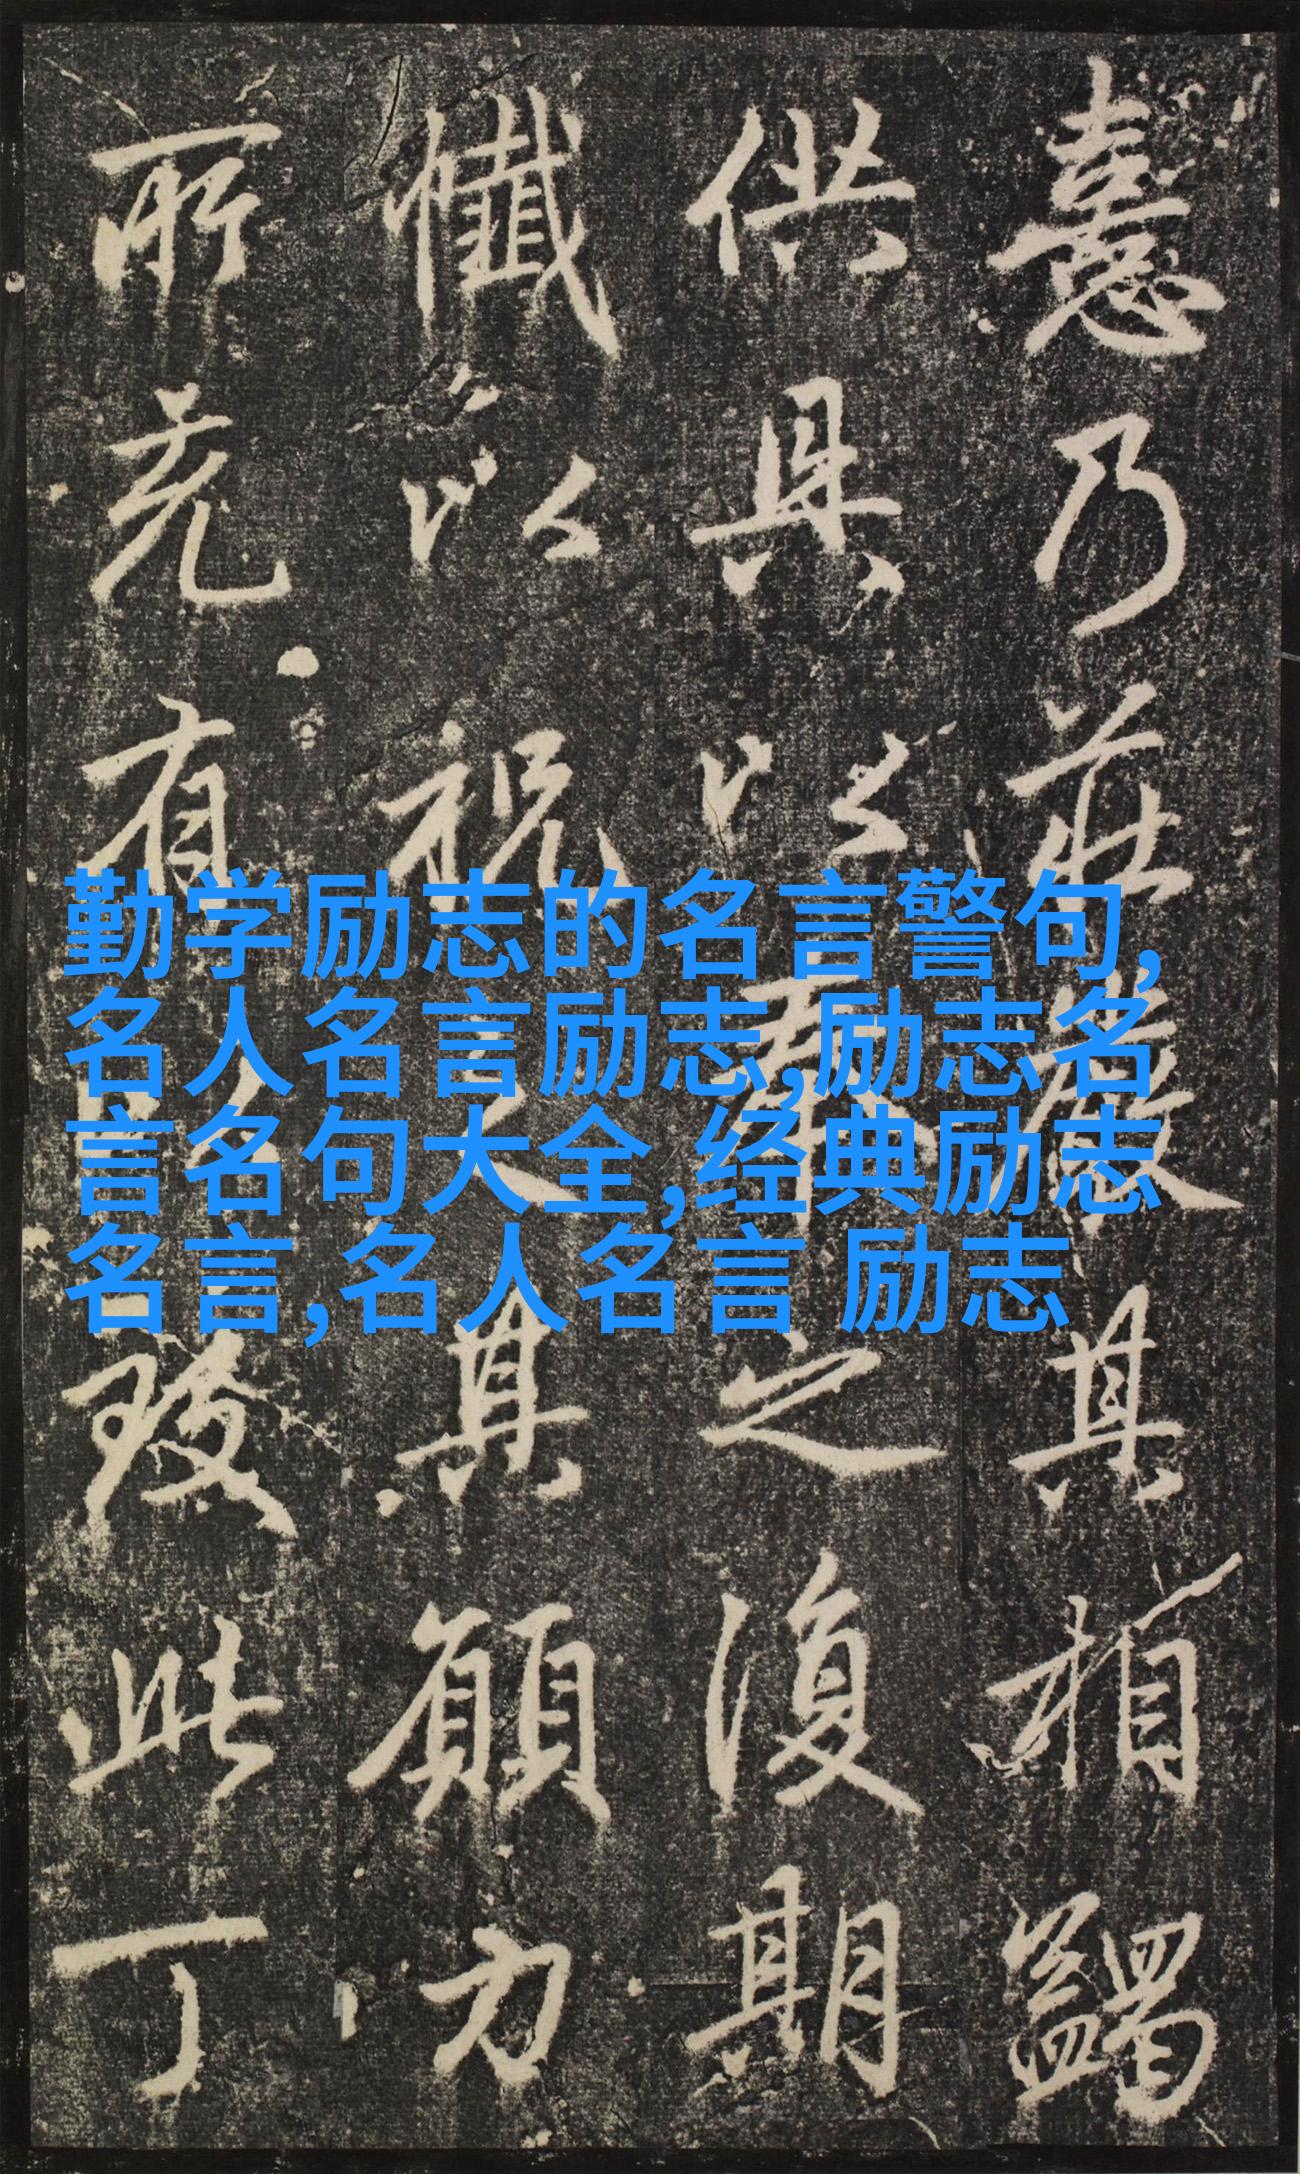 憙乃莊嚴其相蠲
供具以奉之復期
懺以祝之其願力
所有以此丁
勤学励志的名言警句,
名人名言励志,励志名
言名句大全,经典励志
名言,名人名言 励志